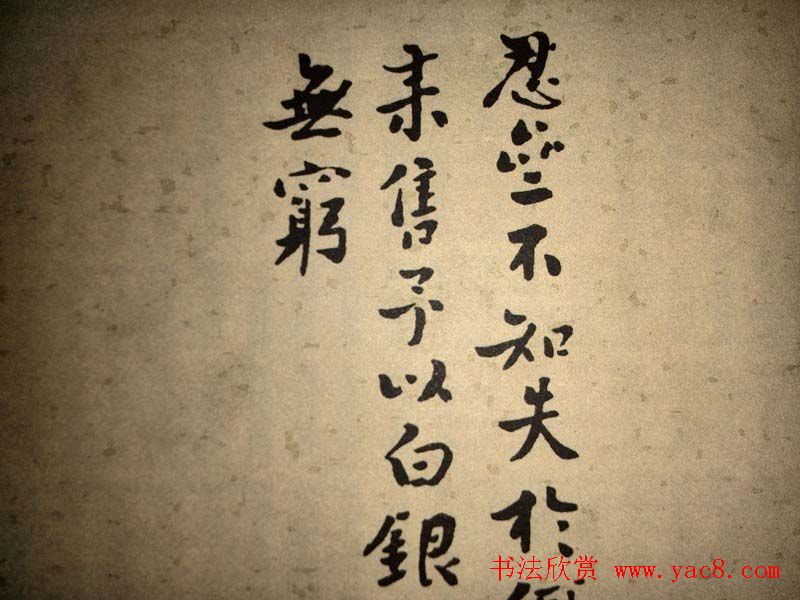 忍不知失於
来售予以白銀
無窮
书法欣赏 www.yac8.com